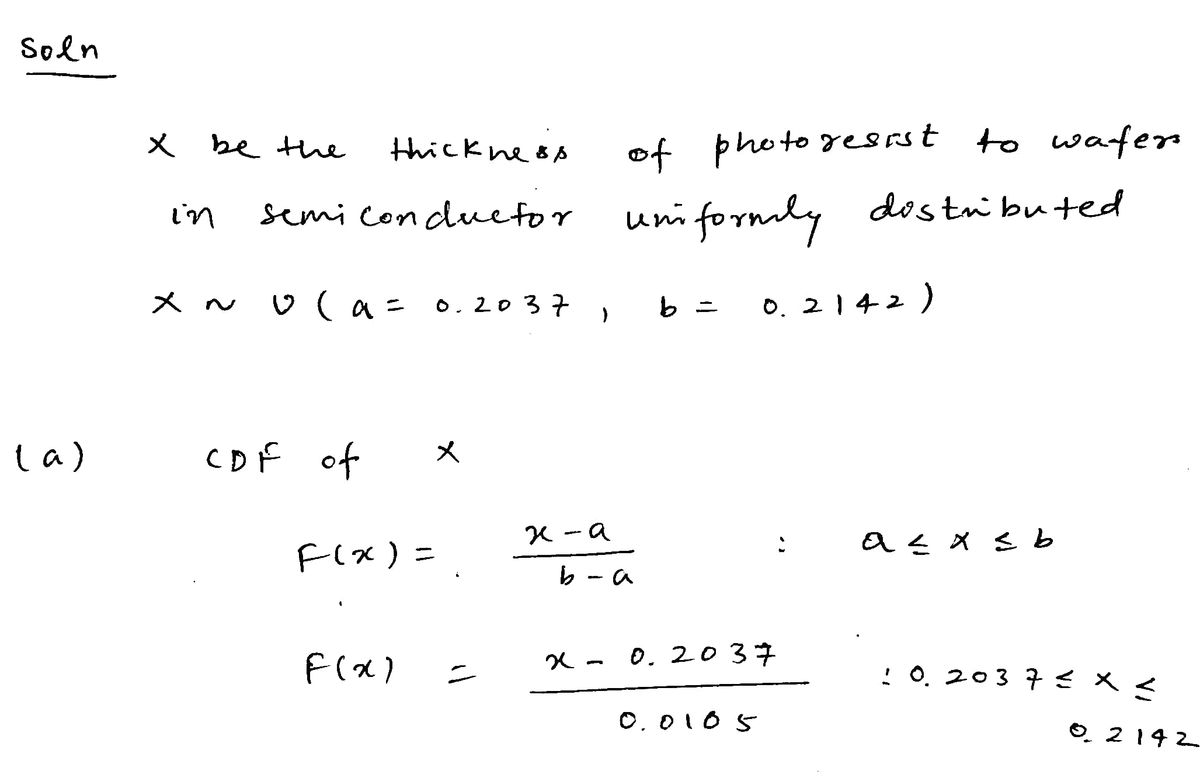 Soln
X be the thickness of photoresist to wafers
in semiconductor uniformly distributed
X ~ U ( a = 0.2037 , b = 0.2142 )
(a) CDF of X
F(x) = x - a / b - a : a ≤ x ≤ b
F(x) = x - 0.2037 / 0.0105 : 0.2037 ≤ x ≤
0.2142